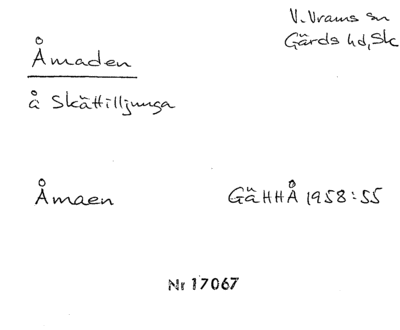 V. Vrams sn
Gärds hd, Sk
Åmaden
å Skättilljunga
Åmaen GäHHÅ 1958:55
Nr 17067